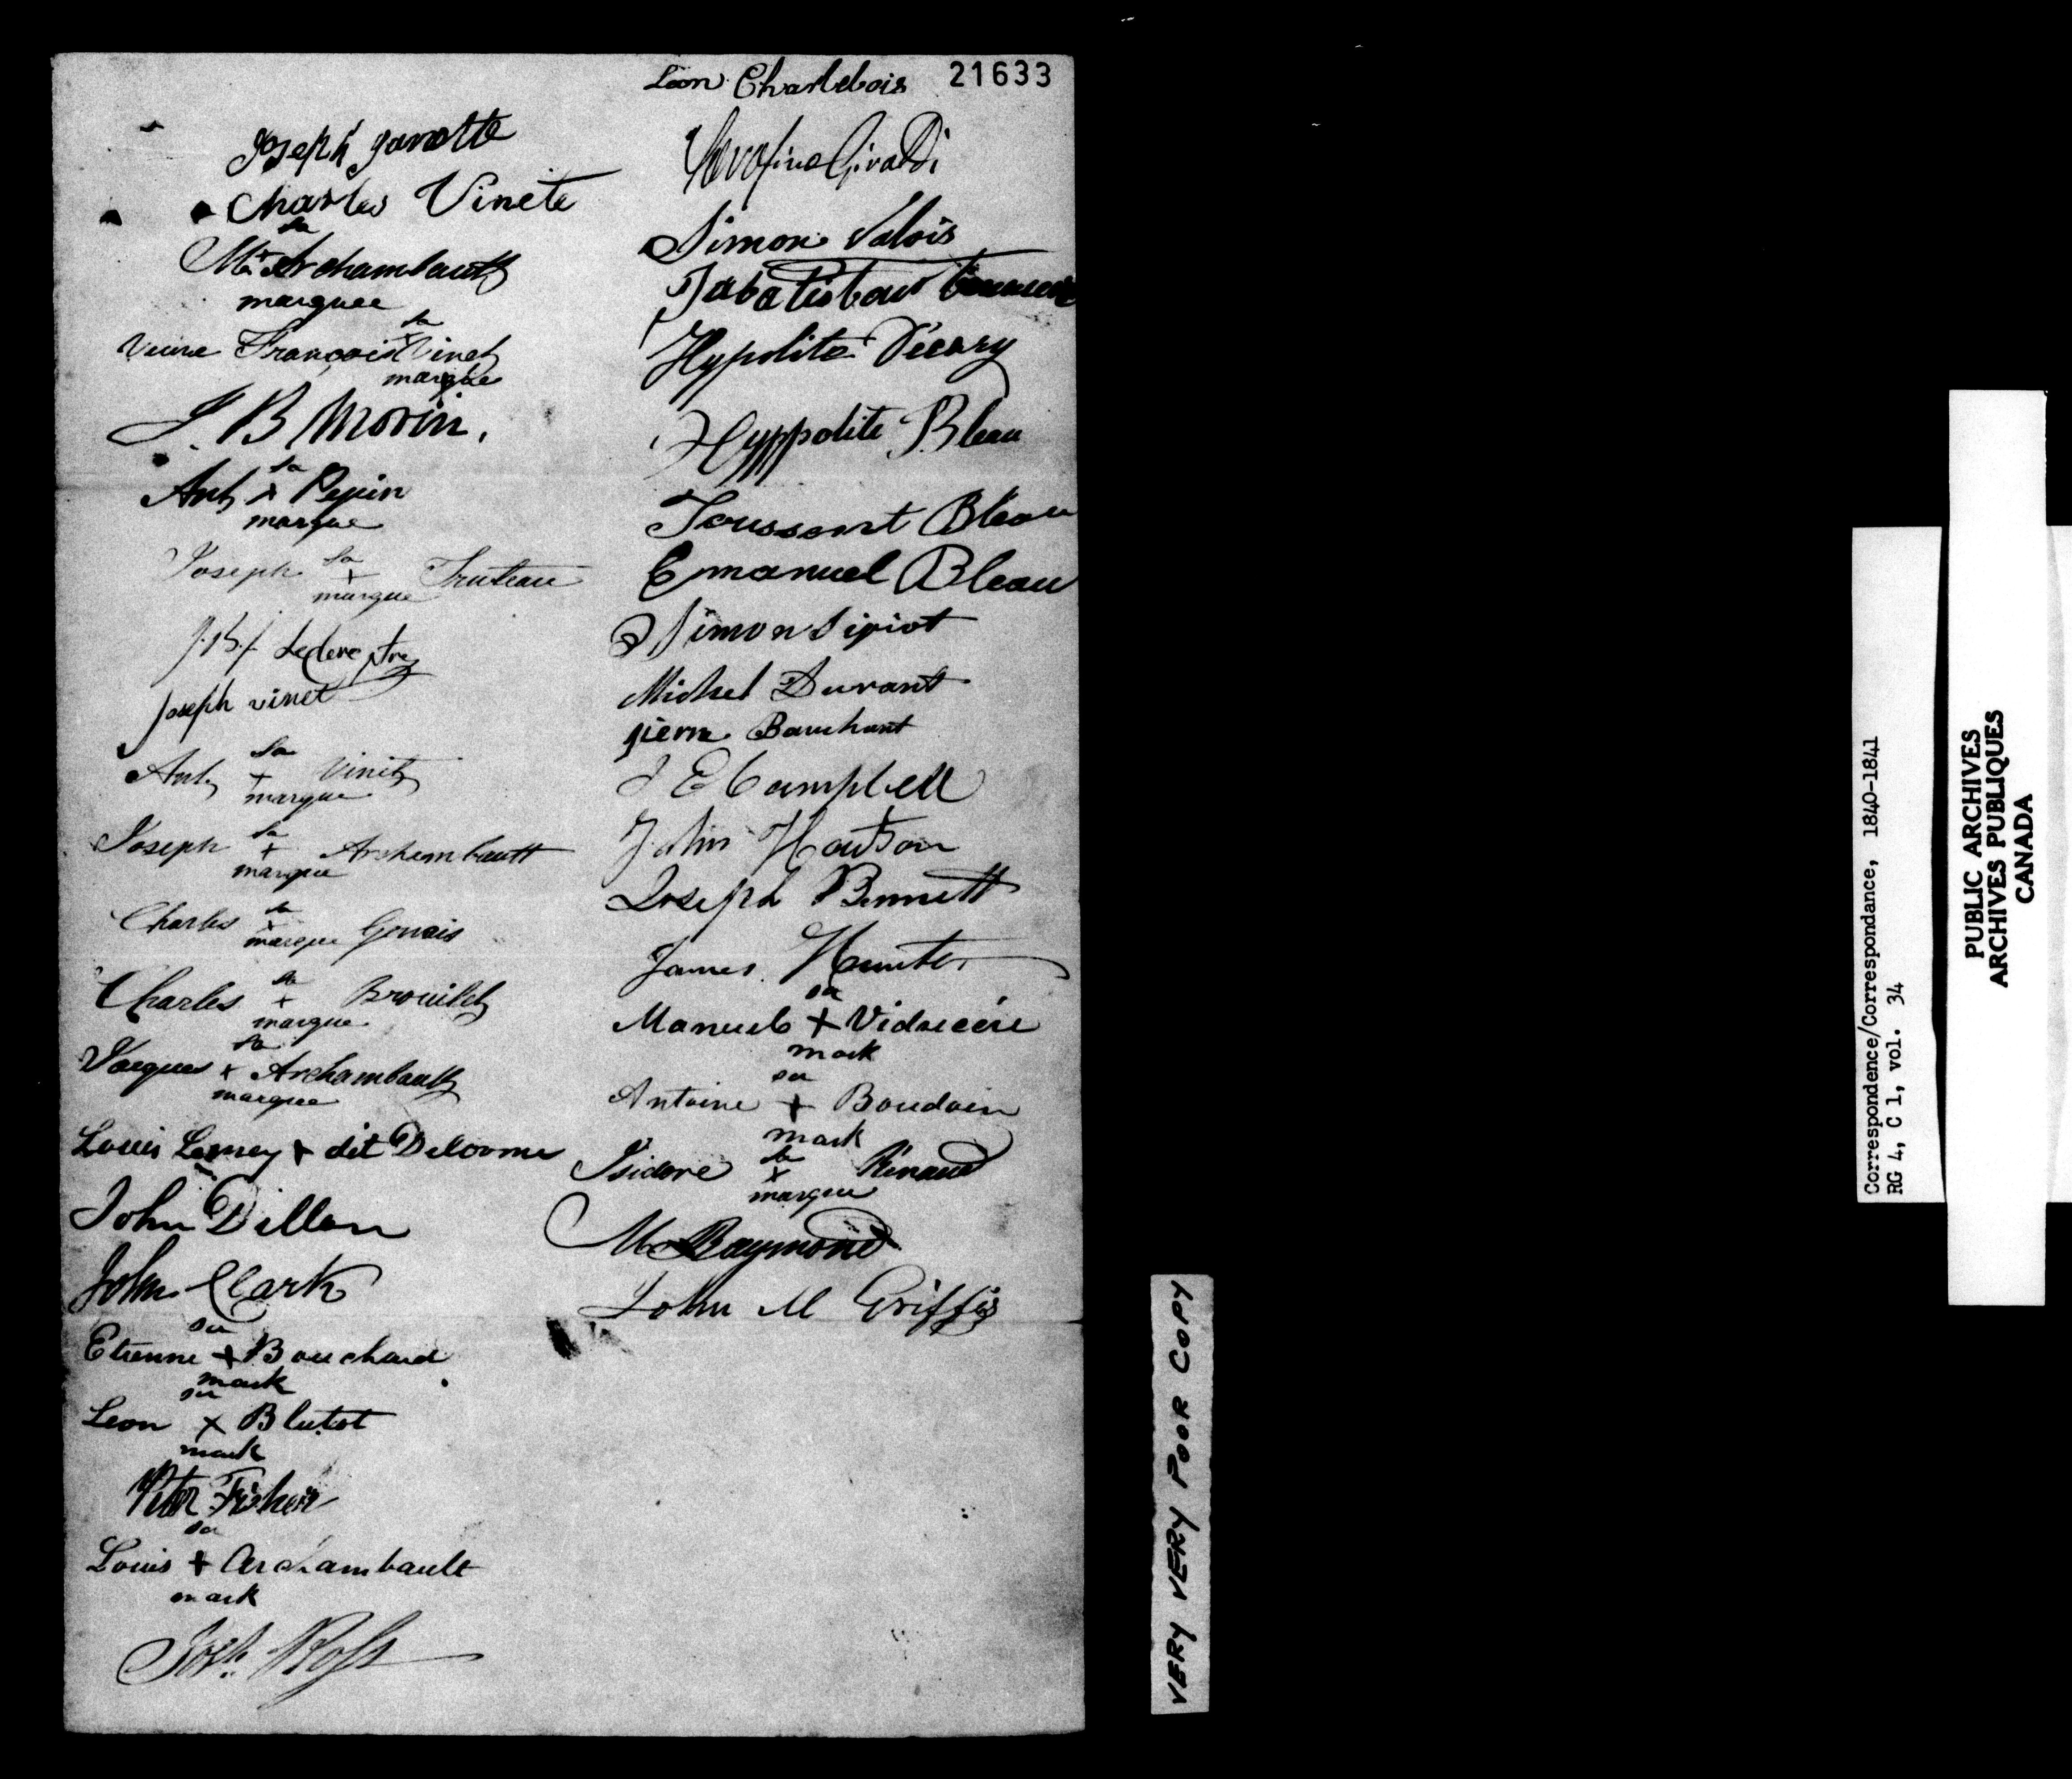 21633
Joseph Janotte
Charles Vinete
sa
Mr Archambault
marquee
sa
Veuve François x Vinet
marque
J. B Morin.
sa
Ant x Pepin
marque
Joseph sa + marque Truteau
J. Bt Leclerc ptre
Joseph vinet
sa
Ant + Vinet
marque
sa
Joseph + Archambault
marque
sa
Charles x Gervais
marque
sa
Charles + Brouilet
marque
sa
Jacques x Archambault
marque
Louis Lemey + dit Delorme
John Dillon
John Clark
sa
Etienne + Bouchard
mark
sa
Leon x Blutot
mark
Peter Fisher
sa
Louis + Archambault
mark
Josh. Ross
Léon Charlebois
Serafino Giraldi
Simon Valois
Hypolite Décary
Hyppolite Bleau
Toussaint Bleau
Emanuel Bleau
Simon Sipiot
Michel Durant
pierre Bauchant
J E Campbell
John Hautson
Joseph Bennett
James Hunter
sa
Manuel + Vidricere
mark
sa
Antoine + Boudoin
mark
sa
Isidore x Renaud
marque
M Raymond
John M Griffis
VERY VERY POOR COPY
Correspondence/Correspondance, 1840-1841
RG 4, C 1, vol. 34
PUBLIC ARCHIVES
ARCHIVES PUBLIQUES
CANADA